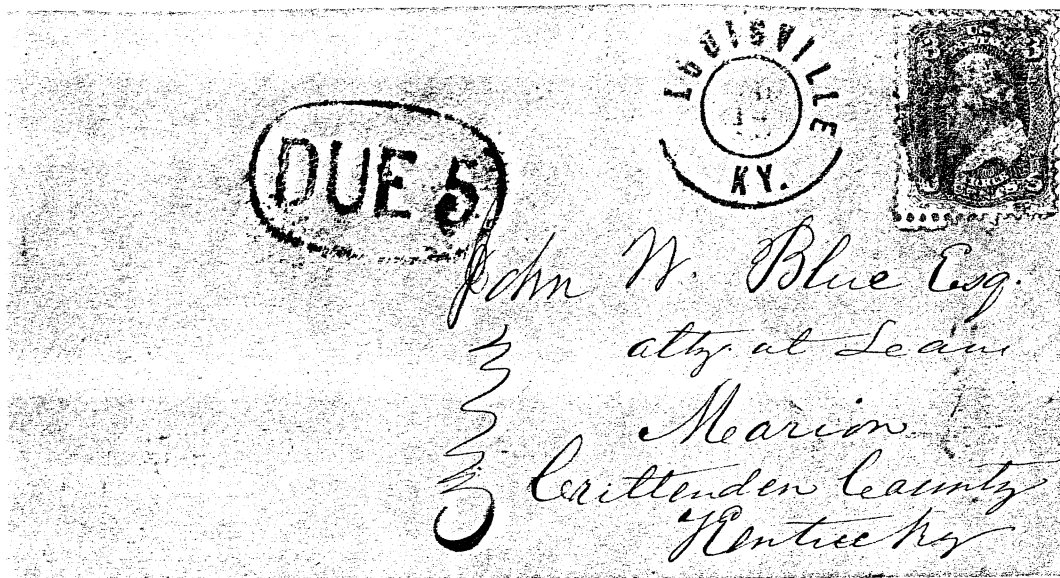 LOUISVILLE
KY.
3 U.S. 3
DUE 5
John W. Blue Esq.
atty. at Law
Marion
Crittenden County
Kentucky